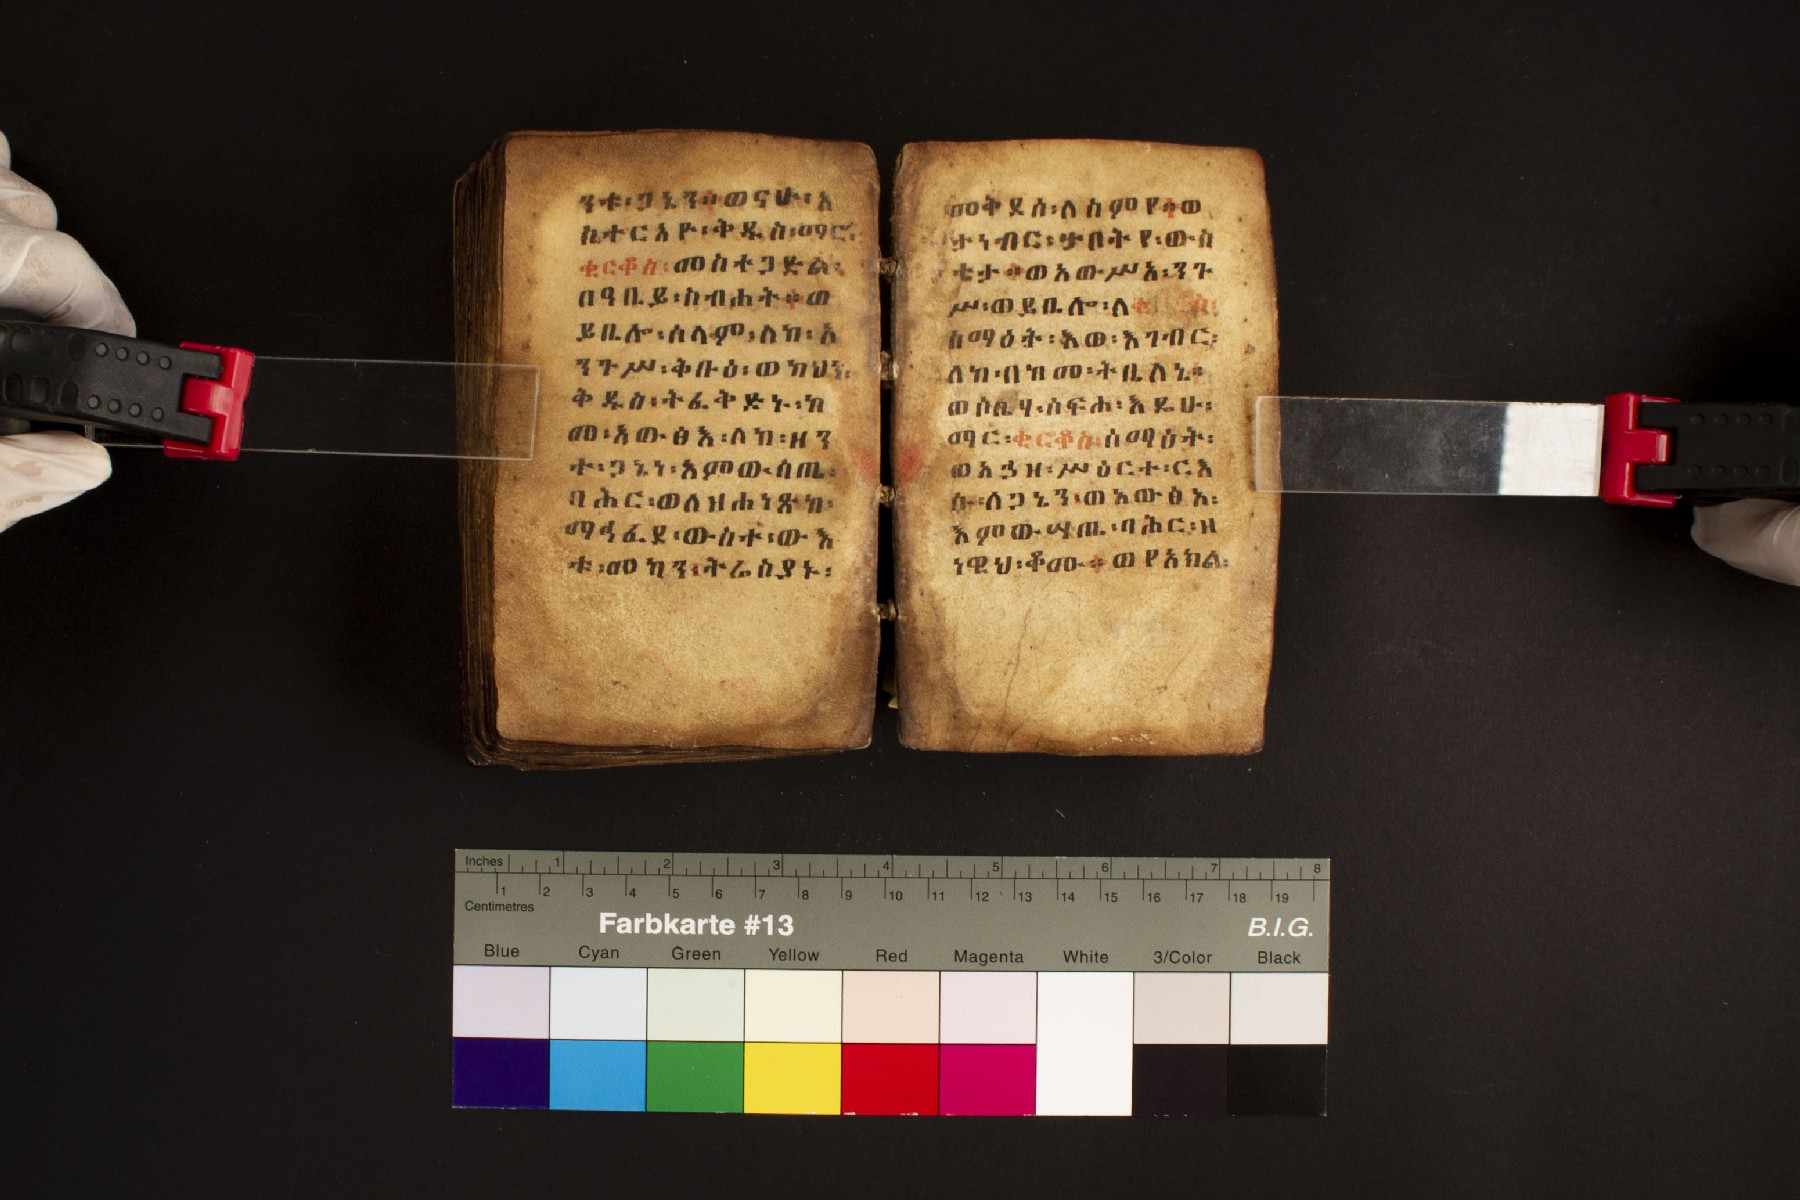 ንቱ፡ጋኔን። ወናሁ፡አ
ስተርአዮ፡ቅዱስ፡ማር፡
ቂርቆስ፡መስተጋድል፡
በዓቢይ፡ስብሐት። ወ
ይቤሎ፡ሰላም፡ለከ፡አ
ንጉሥ፡ቅቡዕ፡ወካህን፡
ቅዱስ፡ትፈትድኑ፡ከ
መ፡አውፅእ፡ለከ፡ዘን
ተ፡ጋኔነ፡እምውሳጤ፡
ባሕር፡ወለዝሐነጽከ፡
ማኅፈደ፡ውስተ፡ውእ
ቱ፡መካን፡ትሬስያኑ፡
መቅደሰ፡ለስምየ። ወ
ታነብር፡ታቦትየ፡ውስ
ቴታ። ወአውሥአ፡ንጉ
ሥ፡ወይቤሎ፡ለ
ሰማዕት፡እወ፡እገብር፡
ለከ፡በከመ፡ትቤለኒ።
ወሶቤሃ፡ሰፍሐ፡እዴሁ፡
ማር፡ቂርቆስ፡ሰማዕት፡
ወአኃዘ፡ሥዕርተ፡ርእ
ሱ፡ለጋኔን፡ወአውፅአ፡
እምውሣጤ፡ባሕር፡ዘ
ነዊህ፡ቆሙ። ወየአክል፡
Inches 1 2 3 4 5 6 7 8
1 2 3 4 5 6 7 8 9 10 11 12 13 14 15 16 17 18 19
Centimetres
Farbkarte #13 B.I.G.
Blue Cyan Green Yellow Red Magenta White 3/Color Black